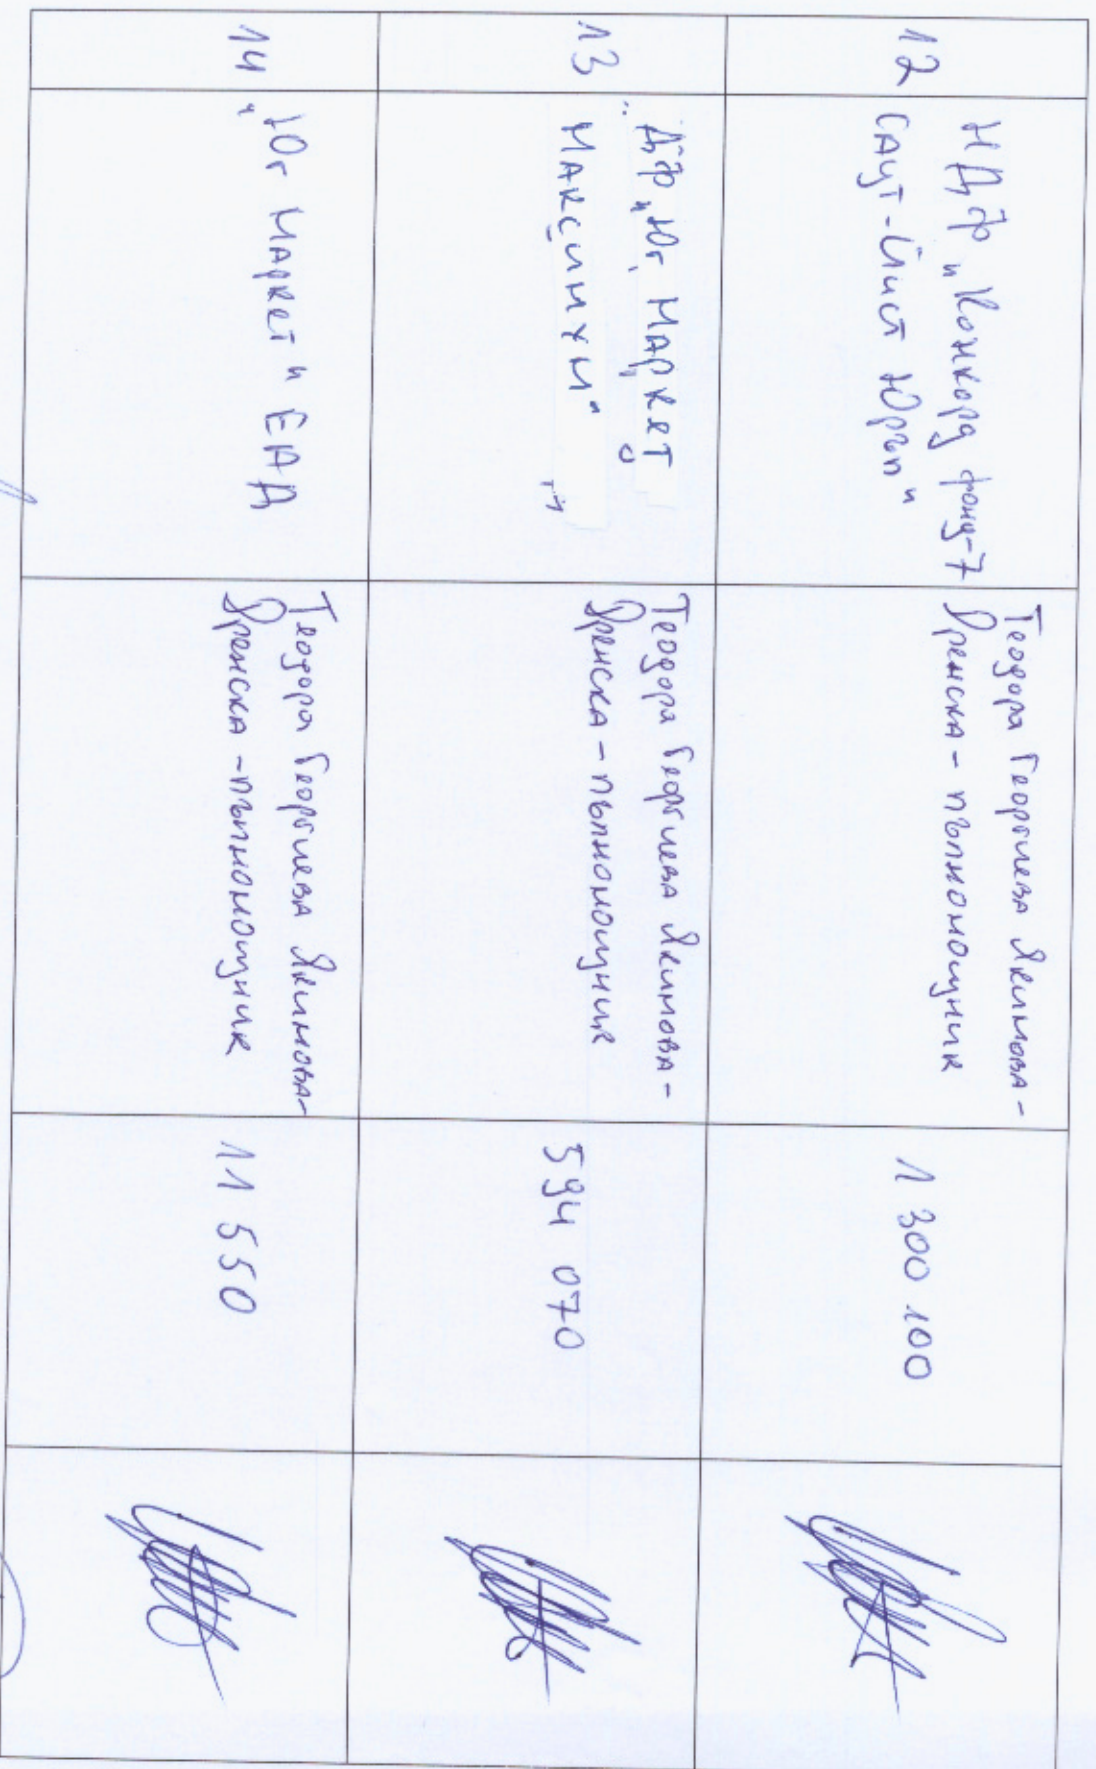 12
НДФ „Конкорд фонд-7
Саут-Ийст Юръп"
Теодора Георгиева Якимова-
Дренска - пълномощник
1 300 100
13
ДФ „Юг Маркет
Максимум"
Теодора Георгиева Якимова-
Дренска - пълномощник
594 070
14
„Юг Маркет" ЕАД
Теодора Георгиева Якимова-
Дренска - пълномощник
11 550